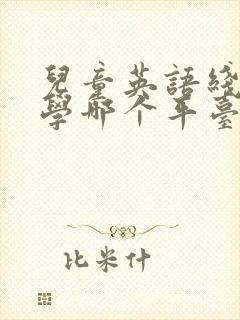 兒童英語綫
學哪个平臺
比米什